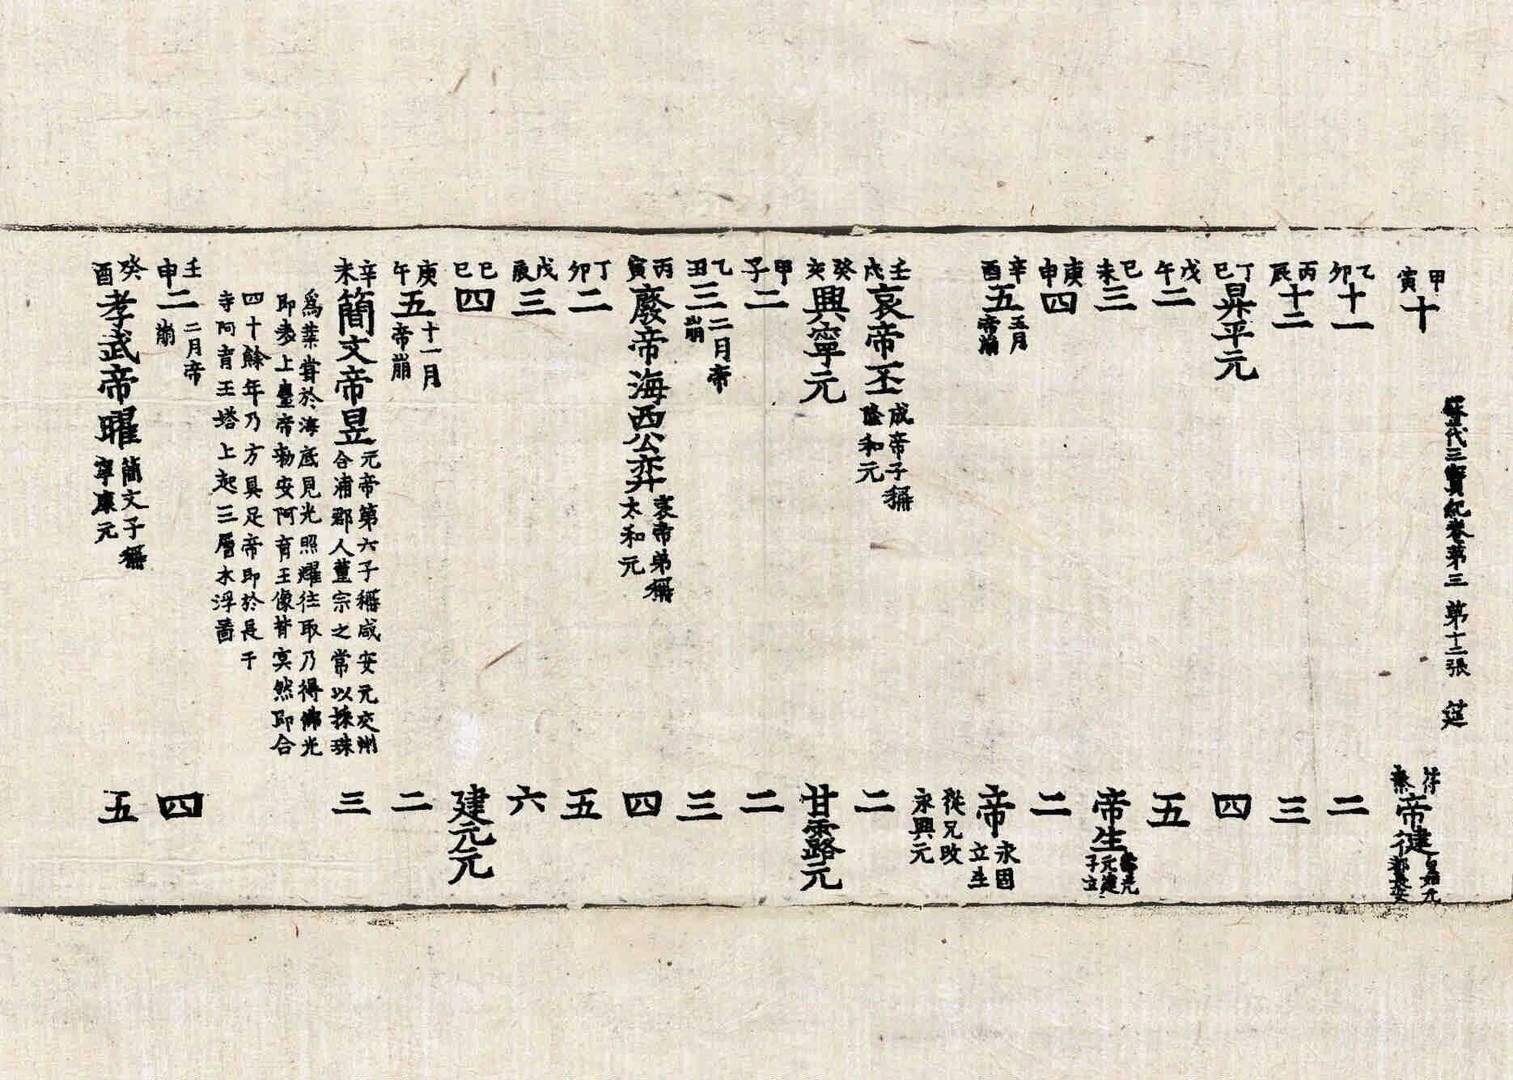 歷代三寶紀卷第三 第十二張 莚
甲寅十 苻秦帝健 皇始元都長安
乙卯十一 二
丙辰十二 三
丁巳昇平元 四
戊午二 五
己未三 帝生 壽光元健子立
庚申四 二
辛酉五 五月帝崩 帝 永固立生
從兄改永興元
壬戌哀帝丕 成帝子稱隆和元 二
癸亥興寧元 甘露元
甲子二 二
乙丑三 二月帝崩 三
丙寅廢帝海西公弈 哀帝弟稱太和元 四
丁卯二 五
戊辰三 六
己巳四 建元元
庚午五 十一月帝崩 二
辛未簡文帝昱 元帝第六子稱咸安元交州 三
合浦郡人董宗之常以採珠
為業嘗於海底見光照耀往取乃得佛光
即表上臺帝勑安阿育王像背冥然即合
四十餘年乃方具足帝即於長干
寺阿育王塔上起三層木浮啚
壬申二 二月帝崩 四
癸酉孝武帝曜 簡文子稱寧康元 五